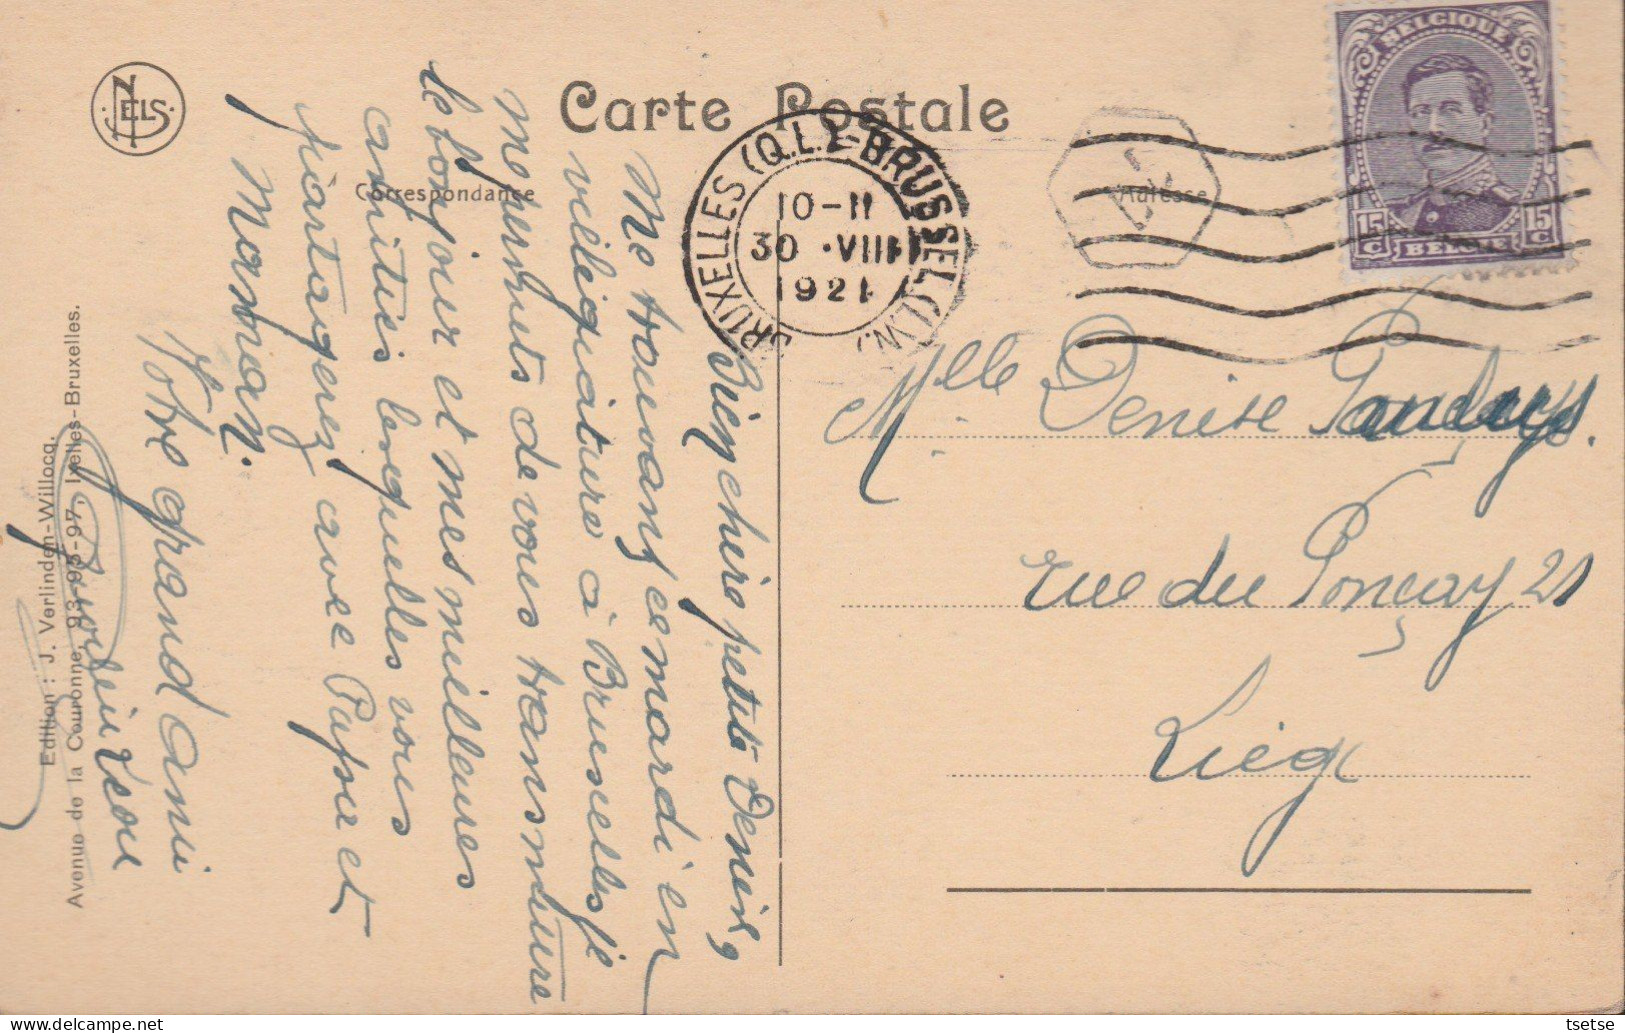 NELS
Carte Postale
Correspondance
Adresse
BRUXELLES (Q.L.) - BRUSSEL (L.W.)
10-11
30 VIII
1921
BELGIQUE
15 C
15 C
BELGIE
Mlle Denise
rue du Ponçay 21
Liége
Bien chère petite Denise,
Me trouvant ce mardi en
villégiature à Bruxelles je
me permets de vous transmettre
le bonjour et mes meilleures
amitiés lesquelles vous
partagerez avec Papa et
Maman.
Votre grand ami
Edition : J. Verlinden-Willocq.
Avenue de la Couronne, 93-95-97, Ixelles-Bruxelles.
tsetse